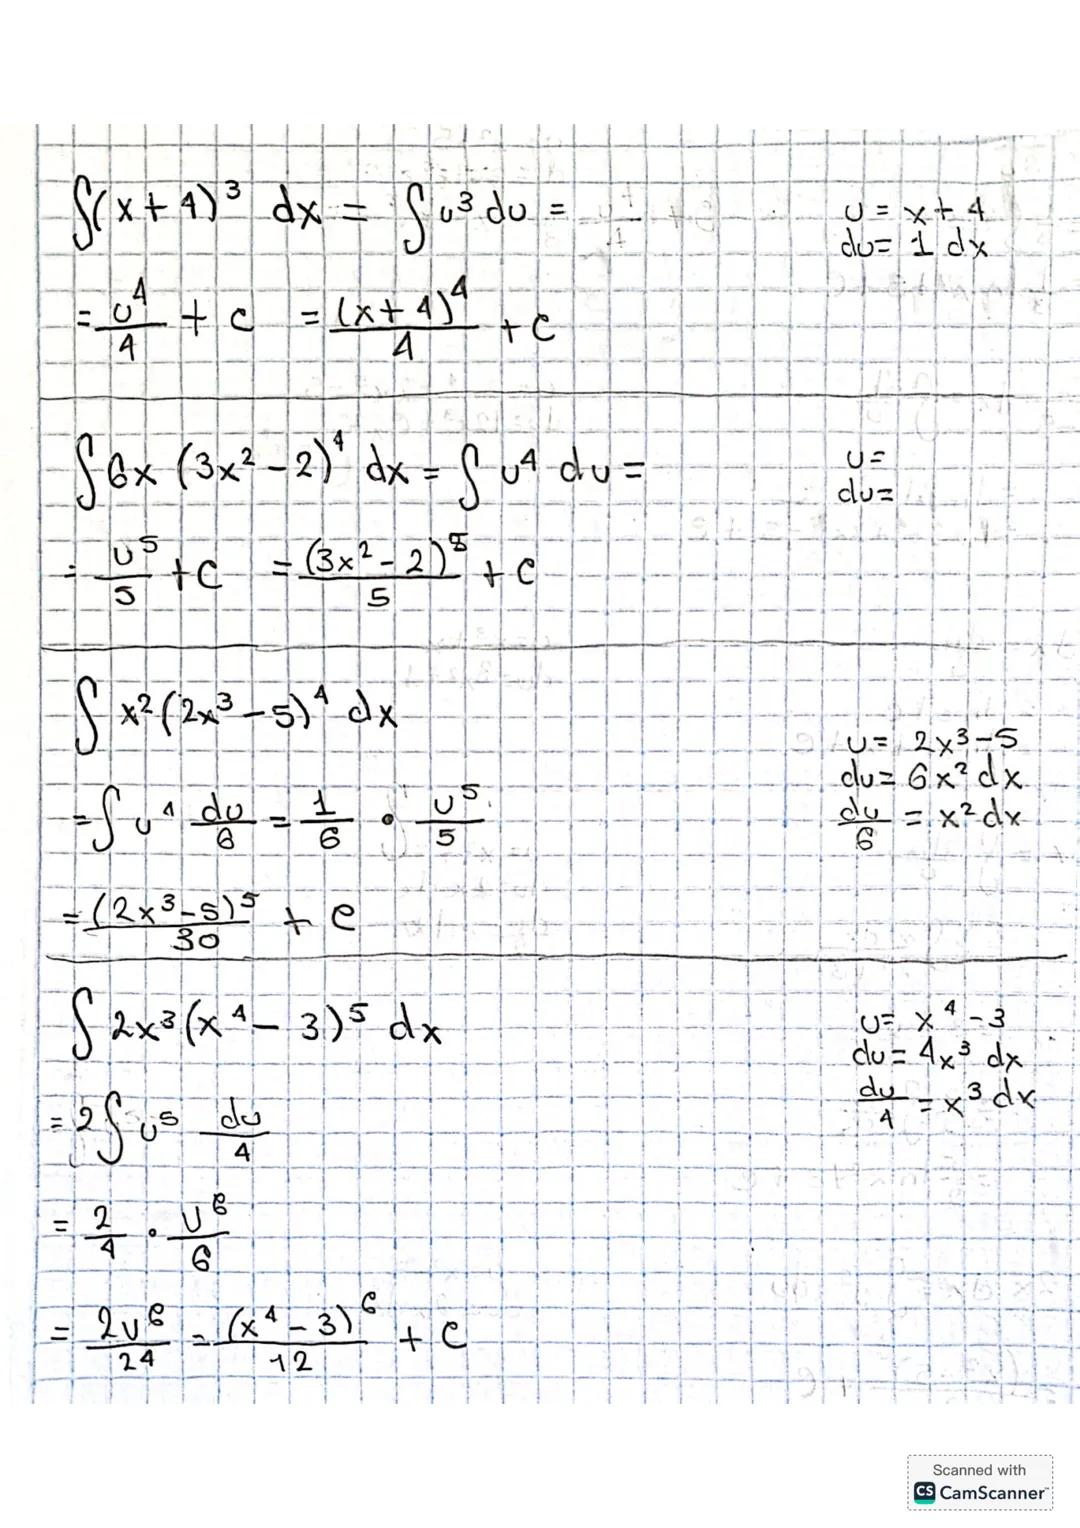 ∫(x+4)³ dx = ∫u³ du =
u = x+4
du= 1 dx
= u⁴/4 + c = (x+4)⁴/4 + c
∫6x (3x²-2)⁴ dx = ∫ u⁴ du =
u=
du=
= u⁵/5 + c = (3x²-2)⁵/5 + c
∫ x²(2x³-5)⁴ dx
u= 2x³-5
du= 6x² dx
du/6 = x² dx
=∫ u⁴ du/6 = 1/6 • u⁵/5
= (2x³-5)⁵/30 + c
∫ 2x³(x⁴-3)⁵ dx
u= x⁴-3
du= 4x³ dx
du/4 = x³ dx
= 2∫ u⁵ du/4
= 2/4 • u⁶/6
= 2u⁶/24 = (x⁴-3)⁶/12 + c
Scanned with
CS CamScanner